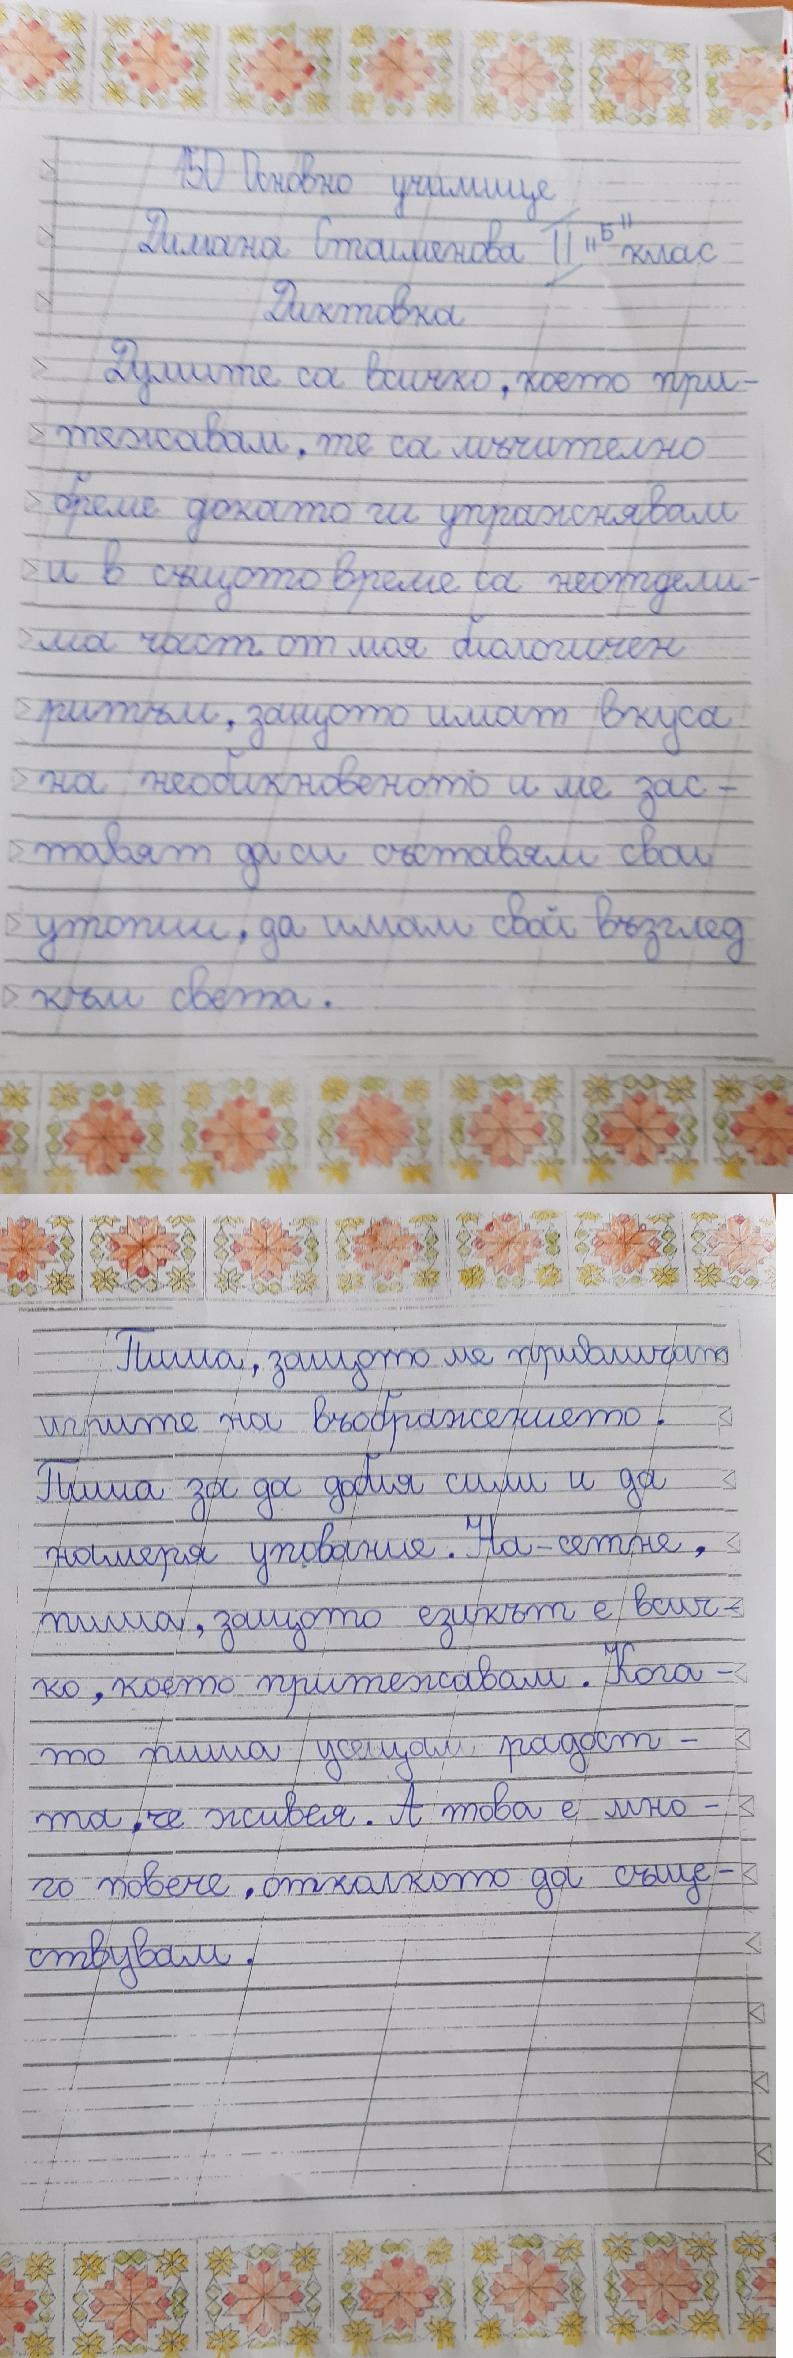 150 Основно училище
Димана Стаименова II "Б" клас
Диктовка
Думите са всичко, което при-
тежавам, те са мъчително
бреме докато ги упражнявам
и в същото време са неотдели-
ма част от моя биологичен
ритъм, защото имат вкуса
на необикновеното и ме зас-
тавят да си съставям свои
утопии, да имам свой възглед
към света.
Пиша, защото ме привличат
игрите на въображението.
Пиша за да добия сили и да
намеря упование. На-сетне,
пиша, защото езикът е всич-
ко, което притежавам. Кога-
то пиша усещам радост-
та, че живея. А това е мно-
го повече, отколкото да съще-
ствувам.